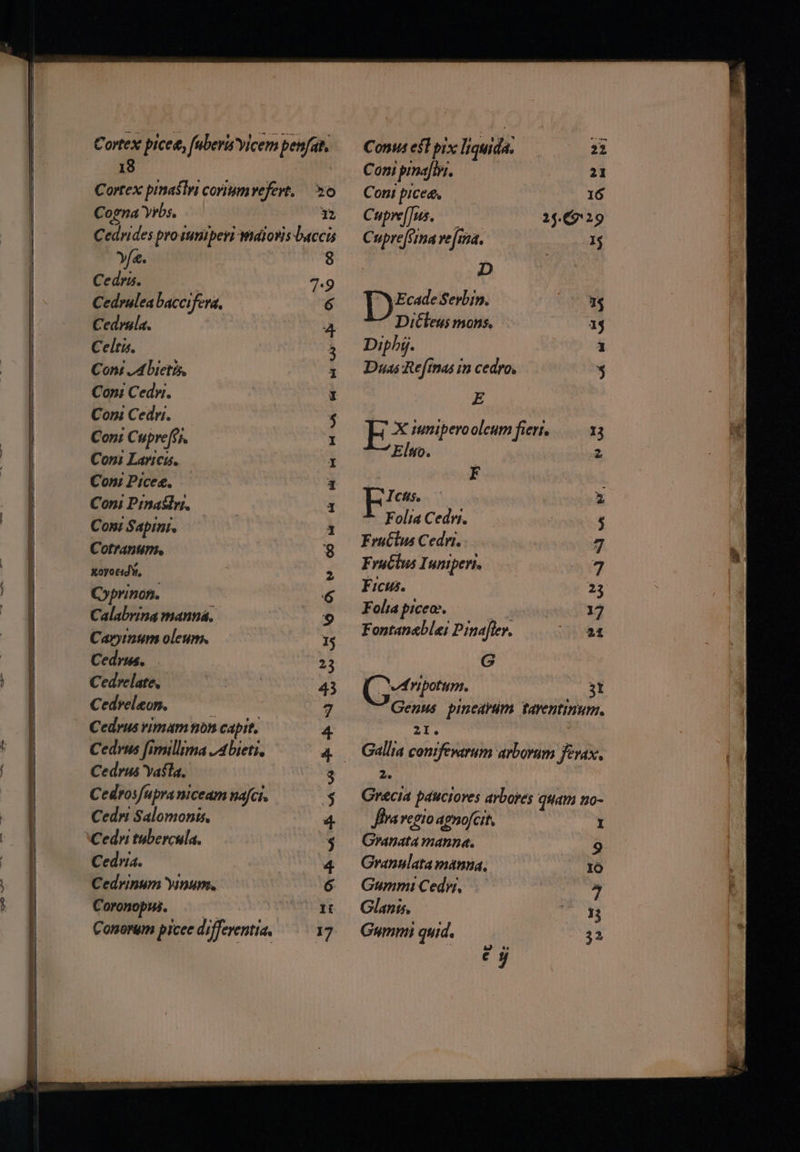 Cortex piceæ, ſuberis vicem penſat,
18
Cortex pinaſtri corium refert. 20
Cogna vrbs. 12
Cedrides pro iuniperi maioris baccis
vſæ. 8
Cedris. 7.9
Cedrulea baccifera, 6
Cedrula. 4
Celtis. 3
Coni Abietis, 1
Coni Cedri. 1
Coni Cedri. 5
Coni Cupreſsi. 1
Coni Laricis. 1
Coni Piceæ, 1
Coni Pinaſtri. 1
Coni Sapini. 1
Cotranum, 8
κονοειδῆ, 2
Cyprinon. 6
Calabrina manna. 9
Caryinum oleum. 15
Cedrus. 23
Cedrelate, 43
Cedrelæon. 7
Cedrus rimam non capit. 4
Cedrus ſimillima Abieti, 4
Cedrus vaſta. 3
Cedros ſupra niceam naſci. 5
Cedri Salomonis, 4
Cedri tubercula. 5
Cedria. 4
Cedrinum vinum, 6
Coronopus. 11
Conorum picee differentia, 17
Conus eſt pix liquida. 22
Coni pinaſtri. 21
Coni piceæ, 16
Cupreſſus. 25.& 29
Cupreſsina reſina. 15
D
DEcade Serbin. 15
Dicteus mons, 15
Diphÿ. 1
Duas Reſinas in cedro, 5
E
EX iunipero oleum fieri, 13
Eluo. 2
F
FIcus. 2
Folia Cedri. 5
Fructus Cedri. 7
Fructus Iuniperi. 7
Ficus. 23
Folia piceæ. 17
Fontaneblei Pinaſter. 21
G
GAripotum. 31
Genus pinearum tarentinum.
21.
Gallia coniferarum arborum ferax.
2.
Grecia pauciores arbores quam no-
ſtra regio agnoſcit, 1
Granata manna. 9
Granulata manna, 10
Gummi Cedri, 7
Glanis, 13
Gummi quid. 32
é ÿ